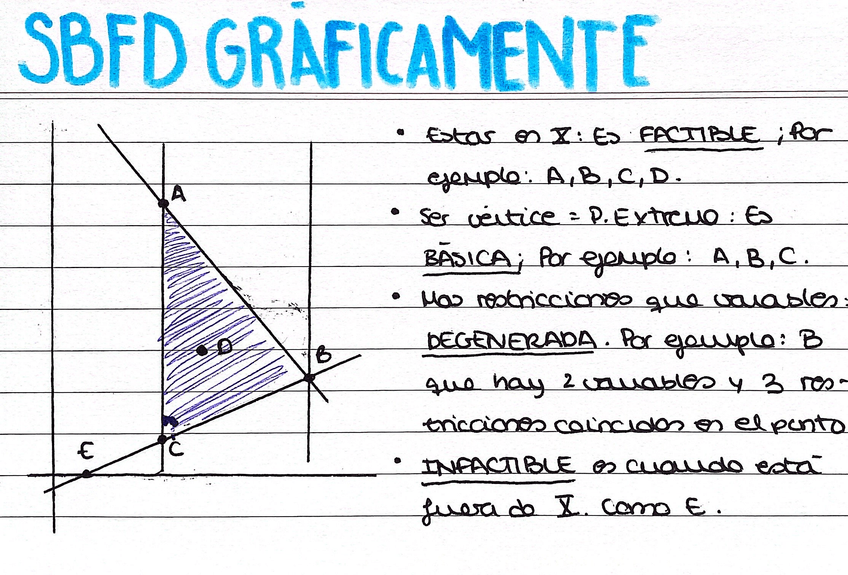 SBFD GRÁFICAMENTE
• Estar en X: Es FACTIBLE; Por
ejemplo: A, B, C, D.
• Ser vértice = P. Extremo: Es
BÁSICA; Por ejemplo: A, B, C.
• Mas restricciones que variables:
DEGENERADA. Por ejemplo: B
que hay 2 variables y 3 res-
tricciones coincidos en el punto
• INFACTIBLE es cuando está
fuera de X. Como E.
A
D
B
E
C